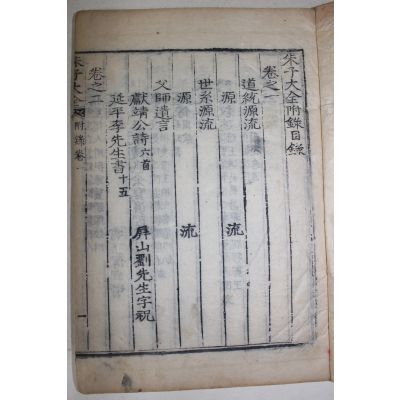 朱子大全附錄目錄
卷之一
道統源流
源　流
世系源流
源　流
父師遺言
獻靖公詩六首　屏山劉先生字祝
延平李先生書十五
卷之二
朱子大全 附錄卷一 一